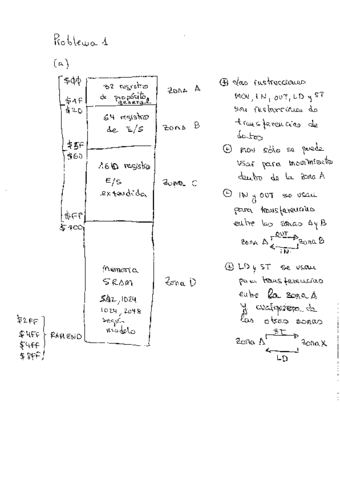 Problema 1
(a)
$00
32 registros
de propósito
general
$1F
zona A
$20
64 registros
de E/S
zona B
$5F
$60
160 registros
E/S
extendida
zona C
$FF
$100
Memoria
SRAM
512, 1024
1024, 2048
según
modelo
zona D
$2FF
$4FF
$4FF
$8FF
RAMEND
instrucciones
MOV, IN, OUT, LD y ST
son instrucciones de
transferencias de
datos
MOV sólo se puede
usar para movimientos
dentro de la zona A
IN y OUT se usan
para transferencias
entre las zonas A y B
OUT
zona A zona B
IN
LD y ST se usan
para transferencias
entre la zona A
y cualquiera de
las otras zonas
ST
zona A zona X
LD